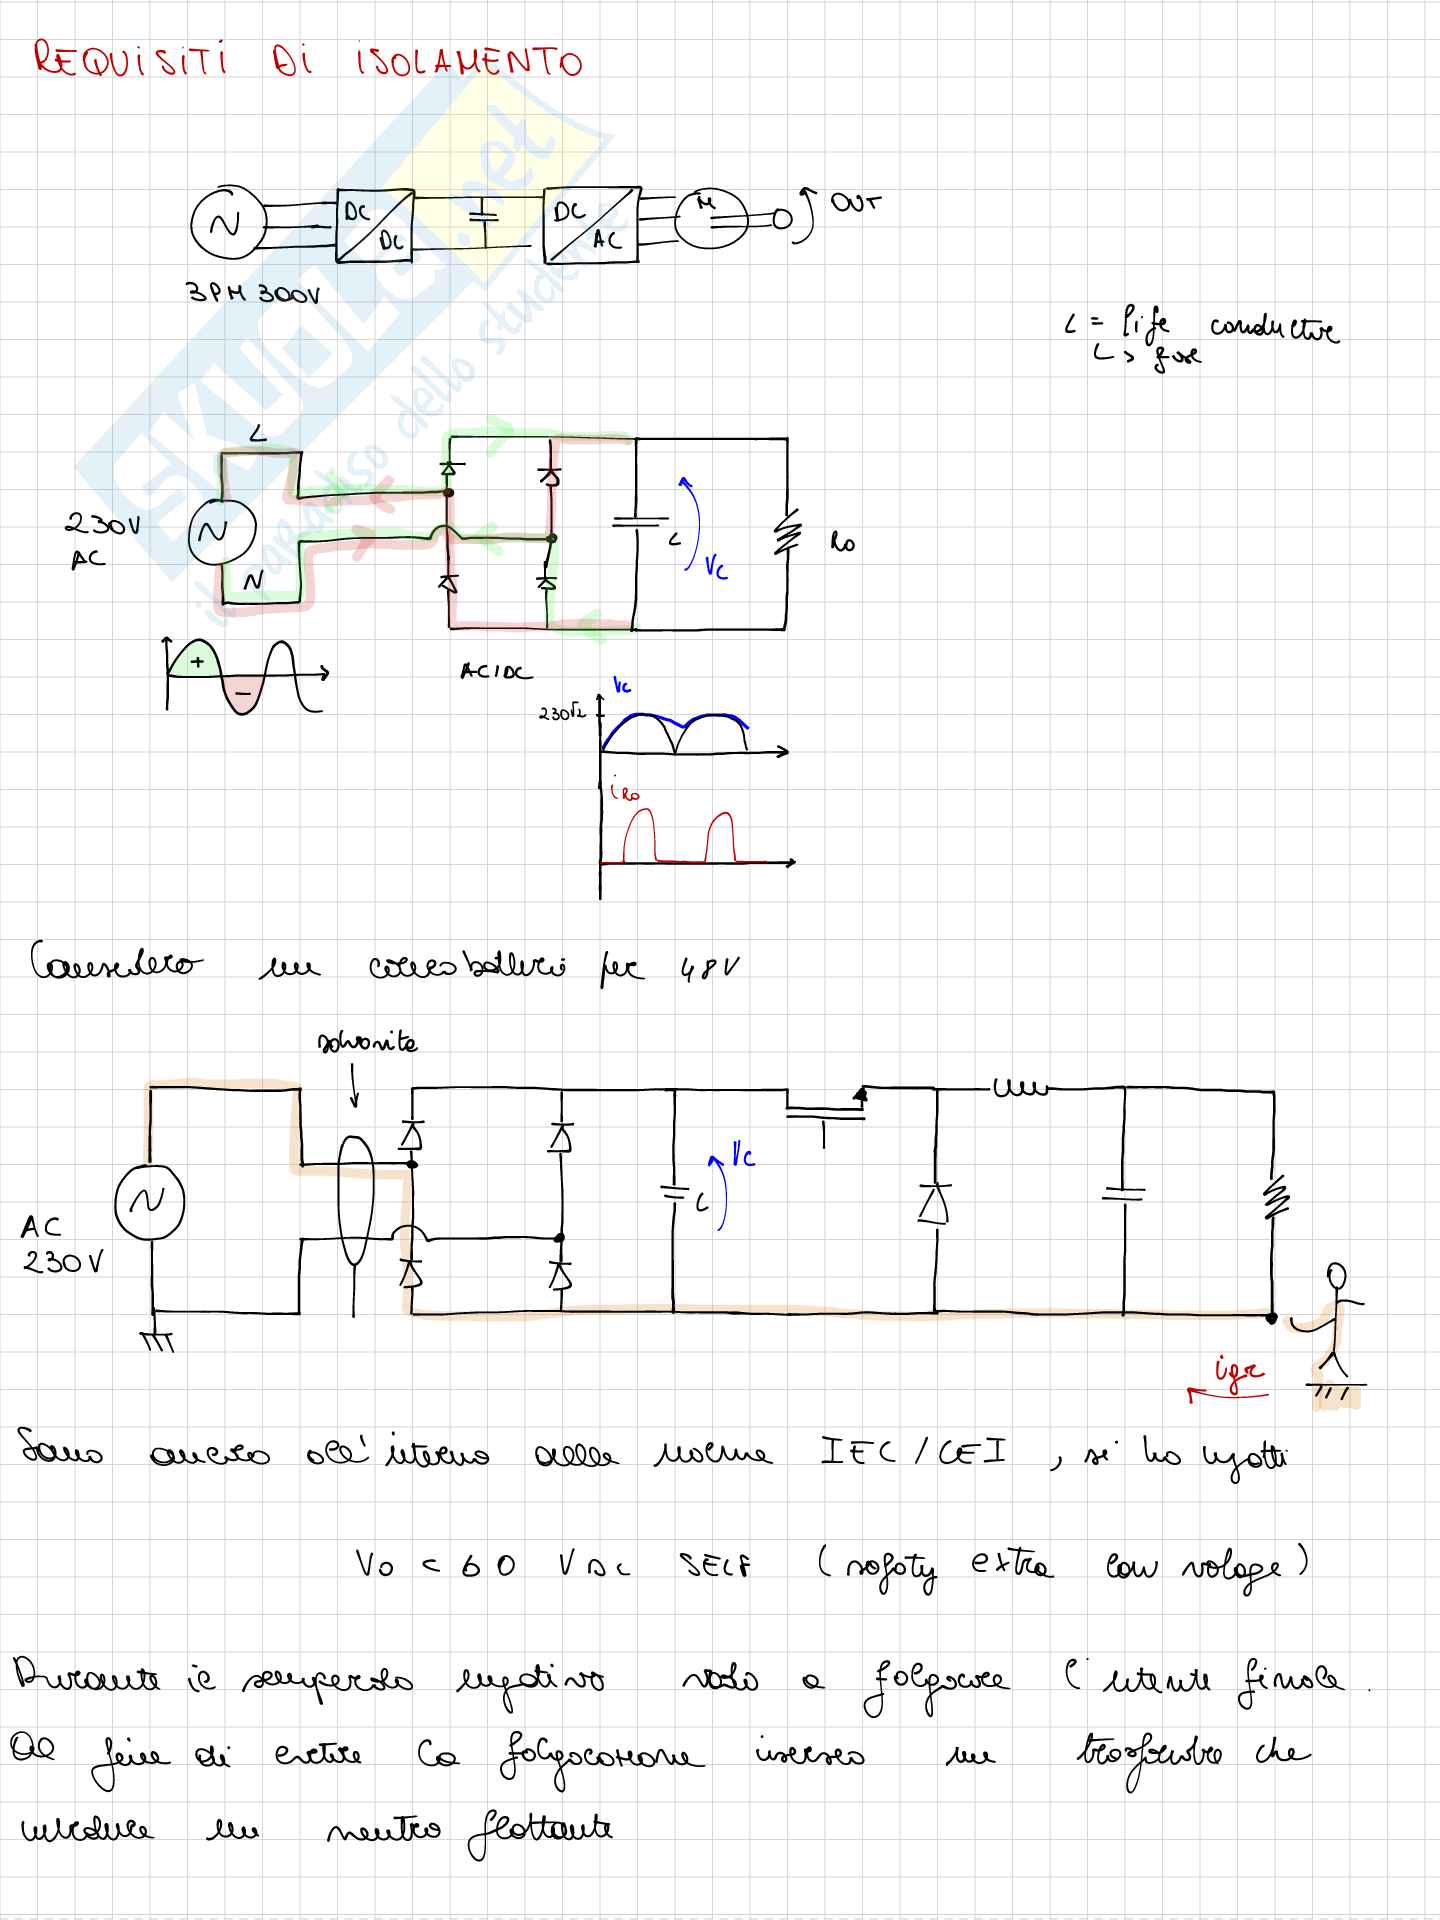 REQUISITI DI ISOLAMENTO
SKUOLA.net
il paradiso dello studente
DC
DC
DC
AC
M
OUT
3PM 300V
L = life conductive
L> fase
L
230V
AC
N
C
VC
R0
+
-
AC/DC
VC
230√2
iR0
Considero un caricabatterie per 48V
salvavita
AC
230V
C
VC
igr
Sono ancora all'interno delle norme IEC/CEI, si ha infatti
V0 < 60 VDC SELF (safaty extra low volage)
Durante il semiperiodo negativo vado a folgorare l'utente finale.
Al fine di evitare la folgorazione inserisco un trasformatore che
introduce un neutro flottante